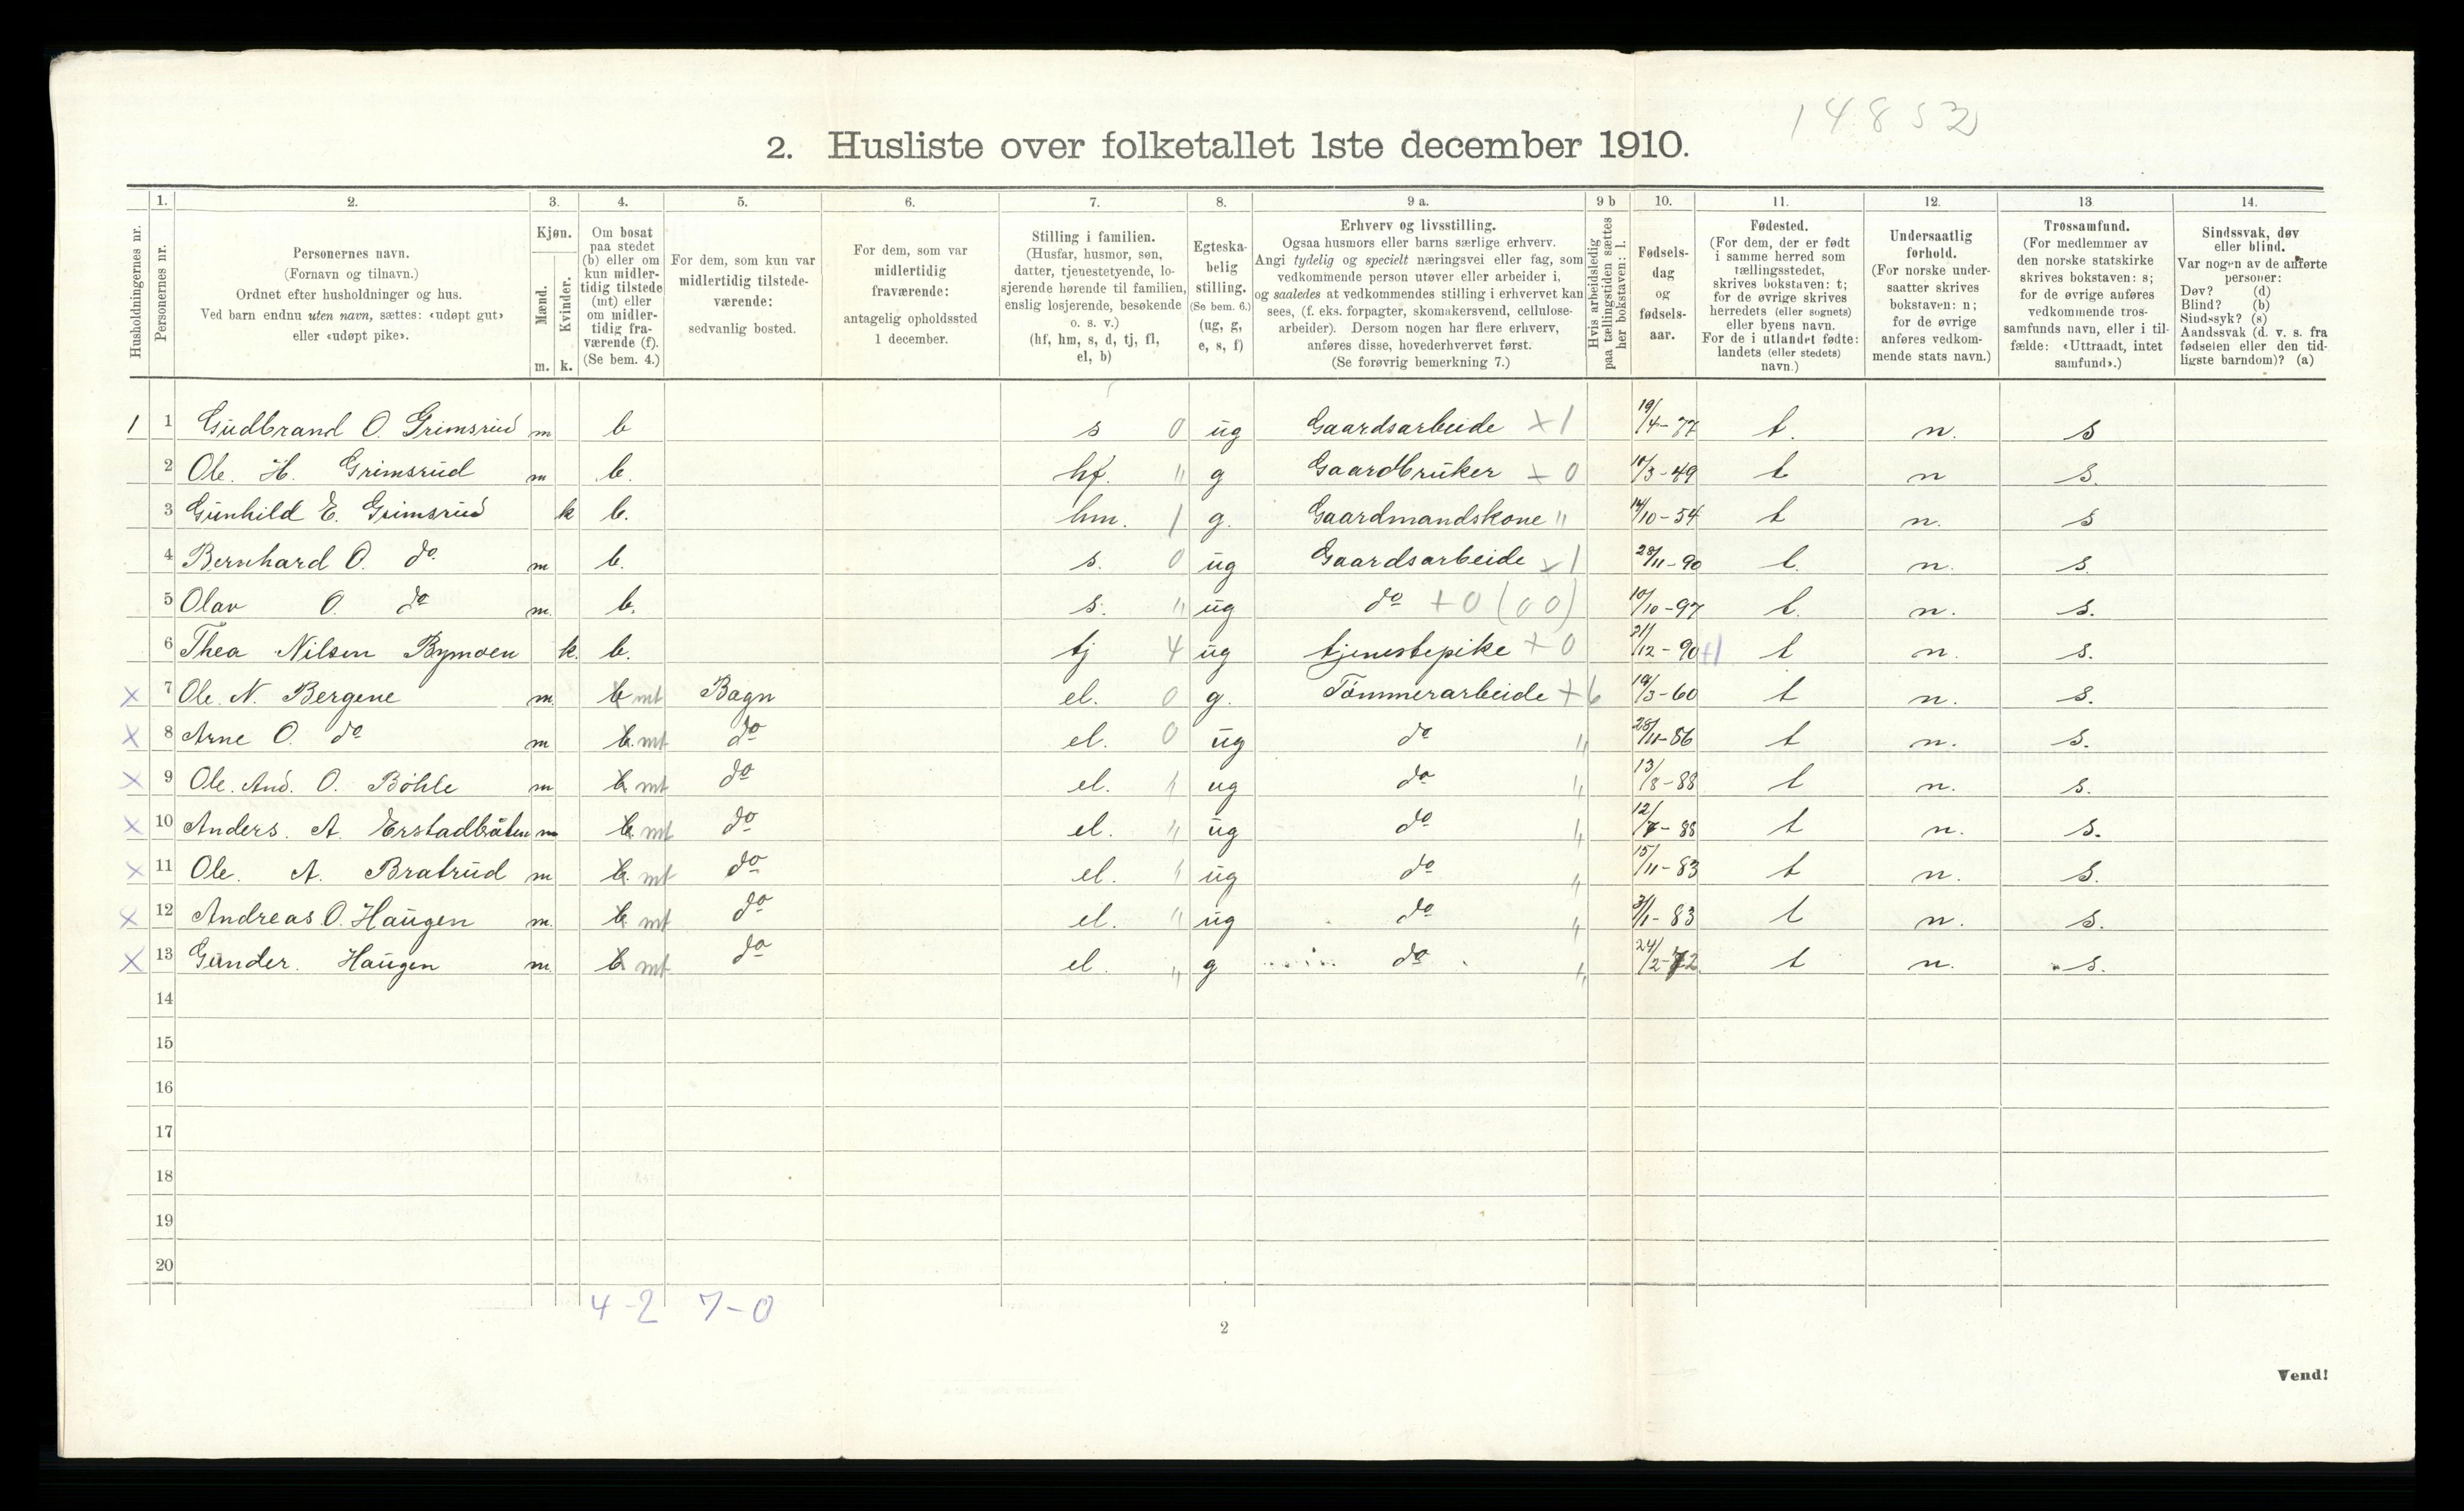 14852
2. Husliste over folketallet 1ste december 1910.
Husholdningernes nr.
1.
Personernes nr.
2.
Personernes navn.
(Fornavn og tilnavn.)
Ordnet efter husholdninger og hus.
Ved barn endnu uten navn, sættes: «udøpt gut»
eller «udøpt pike».
3.
Kjøn.
Mænd.
Kvinder.
m. k.
4.
Om bosat
paa stedet
(b) eller om
kun midler-
tidig tilstede
(mt) eller
om midler-
tidig fra-
værende (f).
(Se bem. 4.)
5.
For dem, som kun var
midlertidig tilstede-
værende:
sedvanlig bosted.
6.
For dem, som var
midlertidig
fraværende:
antagelig opholdssted
1 december.
7.
Stilling i familien.
(Husfar, husmor, søn,
datter, tjenestetyende, lo-
sjerende hørende til familien,
enslig losjerende, besøkende
o. s. v.)
(hf, hm, s, d, tj, fl,
el, b)
8.
Egteska-
belig
stilling.
(Se bem. 6.)
(ug, g,
e, s, f)
9 a.
Erhverv og livsstilling.
Ogsaa husmors eller barns særlige erhverv.
Angi tydelig og specielt næringsvei eller fag, som
vedkommende person utøver eller arbeider i,
og saaledes at vedkommendes stilling i erhvervet kan
sees, (f. eks. forpagter, skomakersvend, cellulose-
arbeider). Dersom nogen har flere erhverv,
anføres disse, hovederhvervet først.
(Se forøvrig bemerkning 7.)
9 b
Hvis arbeidsledig
paa tællingstiden sættes
her bokstaven: l.
10.
Fødsels-
dag
og
fødsels-
aar.
11.
Fødested.
(For dem, der er født
i samme herred som
tællingsstedet,
skrives bokstaven: t;
for de øvrige skrives
herredets (eller sognets)
eller byens navn.
For de i utlandet fødte:
landets (eller stedets)
navn.)
12.
Undersaatlig
forhold.
(For norske under-
saatter skrives
bokstaven: n;
for de øvrige
anføres vedkom-
mende stats navn.)
13
Trossamfund.
(For medlemmer av
den norske statskirke
skrives bokstaven: s;
for de øvrige anføres
vedkommende tros-
samfunds navn, eller i til-
fælde: «Uttraadt, intet
samfund».)
14.
Sindssvak, døv
eller blind.
Var nogen av de anførte
personer:
Døv? (d)
Blind? (b)
Sindssyk? (s)
Aandssvak (d. v. s. fra
fødselen eller den tid-
ligste barndom)? (a)
1 1 Gudbrand O. Grimsrud m b s 0 ug Gaardsarbeide +1 19/4-77 t. n. s
2 Ole. H. Grimsrud m b. hf. " g Gaardbruker + 0 10/3-49 t n s.
3 Gunhild E. Grimsrud k b. hm. 1 g. Gaardmandskone " 14/10-54 t n. s
4 Bernhard O. do m b. s. 0 ug Gaardsarbeide +1 28/11-90 t. n. s.
5 Olav O. do m. b. s. " ug do +0 (00) 10/10-97 t. n. s.
6 Thea Nilsen Bymoen k. b. tj 4 ug tjenestepike +0 21/12-90 +1 t n. s.
x 7 Ole. N. Bergene m. b mt Bagn el. 0 g. Tømmerarbeide +6 19/3-60 t n. s.
x 8 Arne O. do m b. mt do el. 0 ug do " 28/11-86 t n. s.
x 9 Ole. And. O. Bøhle m b mt do el. " ug do " 13/8-88 t n. s.
x 10 Anders. A. Erstadbråten m b. mt do el. " ug do " 12/7-88 t n. s.
x 11 Ole. A. Bratrud m b. mt do el. " ug do " 15/11-83 t n. s.
x 12 Andreas O. Haugen m. b mt do el. " ug do " 3/1-83 t n. s.
x 13 Gunder. Haugen m. b mt do el. " g do " 24/2-72 t n. s.
14
15
16
17
18
19
20
4-2 7-0
2
Vend!